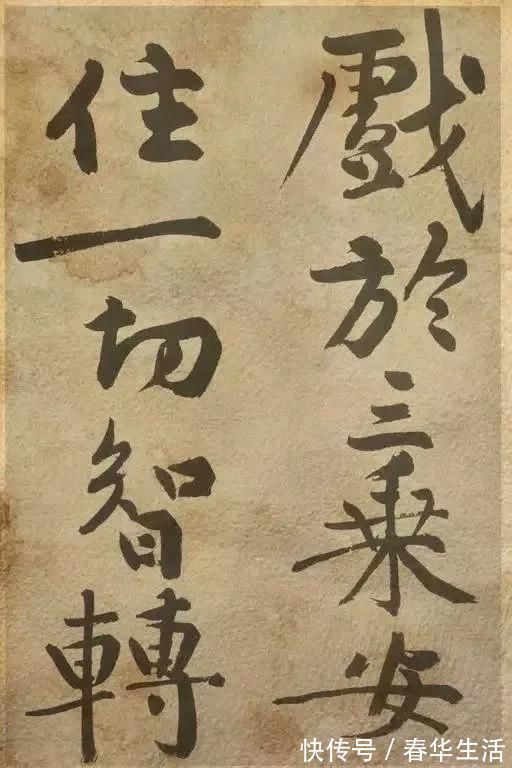 戲於三乗安
住一切智轉
快传号/春华生活